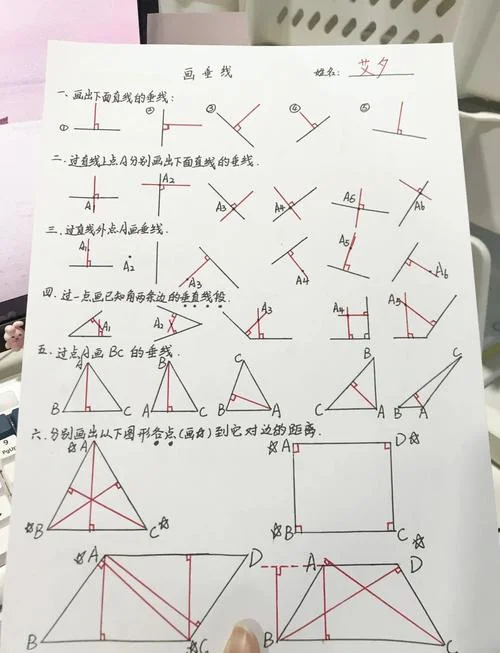 画垂线 姓名: 艾夕
一、画出下面直线的垂线:
① ② ③ ④ ⑤
二、过直线上点A分别画出下面直线的垂线.
A₁ A₂ A₃ A₄ A₅ A₆
三、过直线外点A画垂线.
A₁ A₂ A₃ A₄ A₅ A₆
四、过一点画已知角两条边的垂直线段
A₁ A₂ A₃ A₄ A₅
五、过点A画BC的垂线.
A B C
B A C
C B A
B C A
C B A
六、分别画出从下图形各点(画☆)到它对边的距离.
☆A ☆B C☆
☆A D☆ ☆B C☆
☆A D B ☆C
A D ☆B C